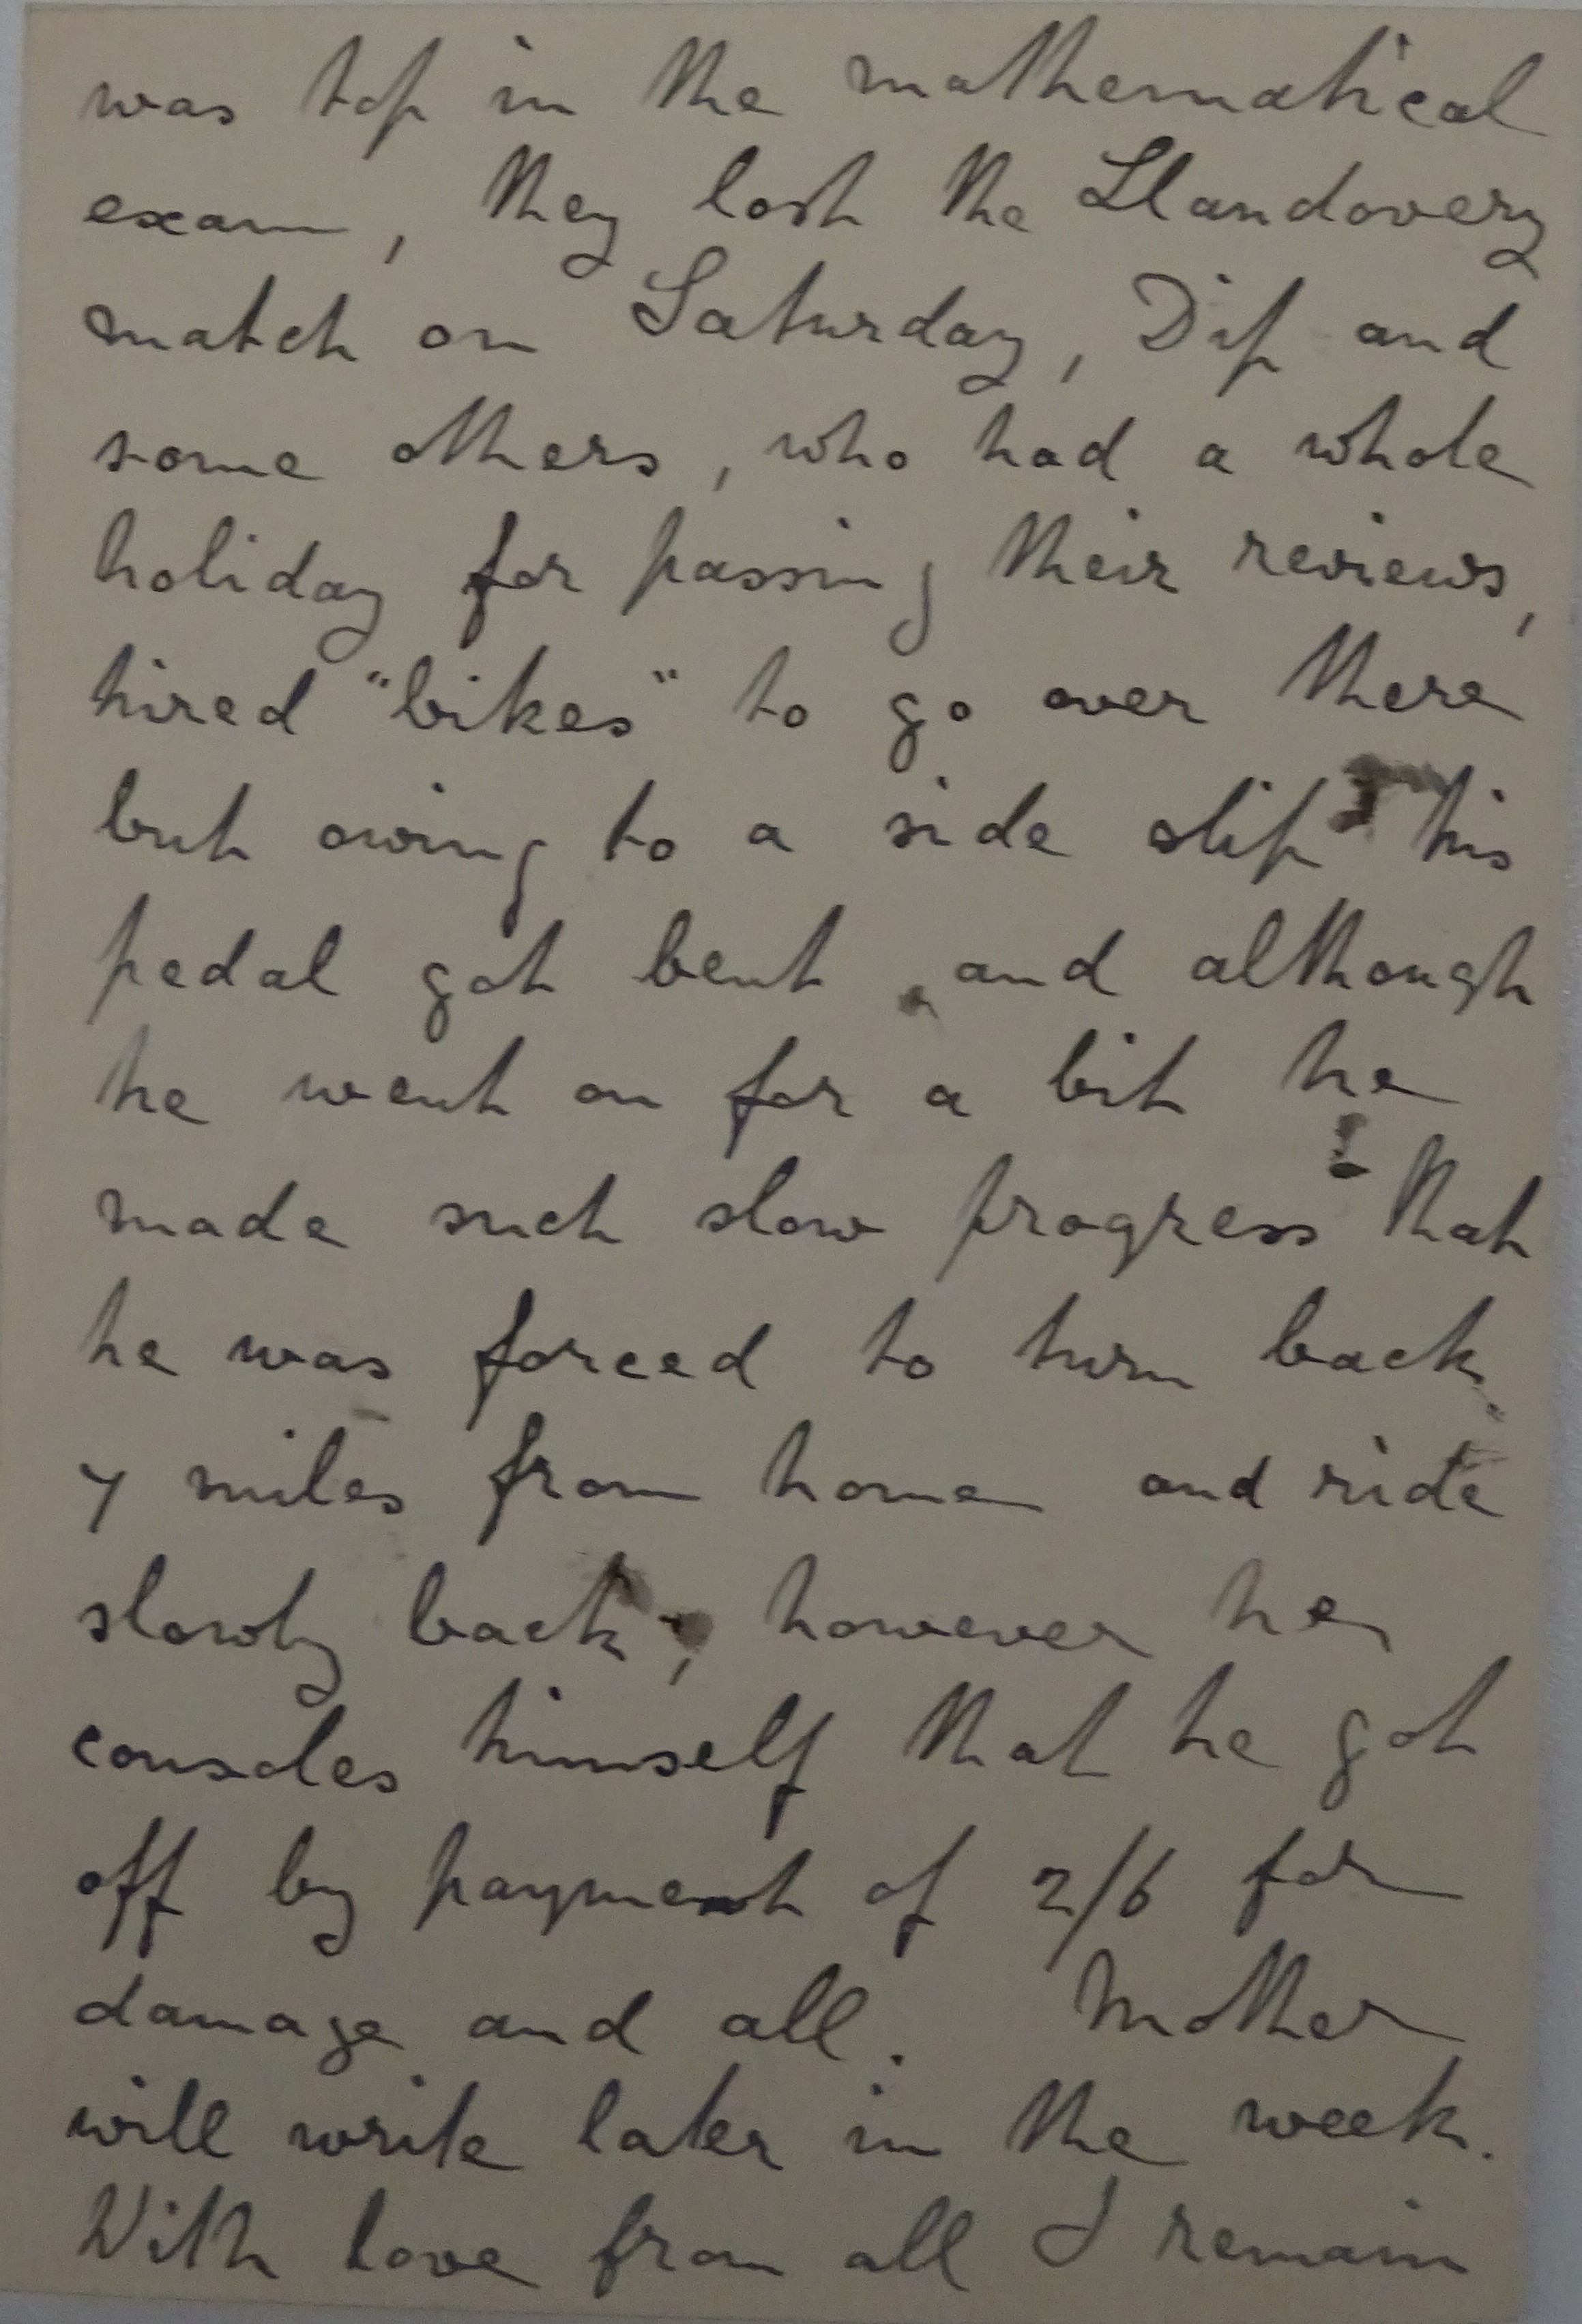 was top in the mathematical
exam, they lost the Llandovery
match on Saturday, Dip and
some others, who had a whole
holiday for passing their reviews,
hired "bikes" to go over there
but owing to a side slip his
pedal got bent and although
he went on for a bit he
made such slow progress that
he was forced to turn back
7 miles from home and ride
slowly back; however he
consoles himself that he got
off by payment of 2/6 for
damage and all. Mother
will write later in the week.
With love from all I remain